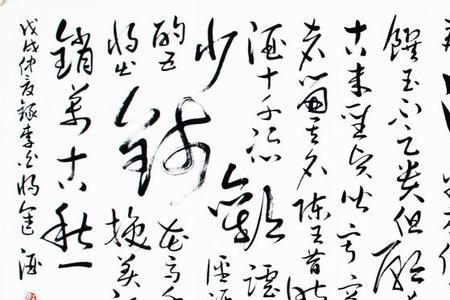 饌玉不足貴但願
古来聖賢皆寂
者留其名陳王昔時
酒十千恣歡謔
少錢徑
酌五花
将出換美
銷萬古愁一
戊戌仲夏録李白将進酒